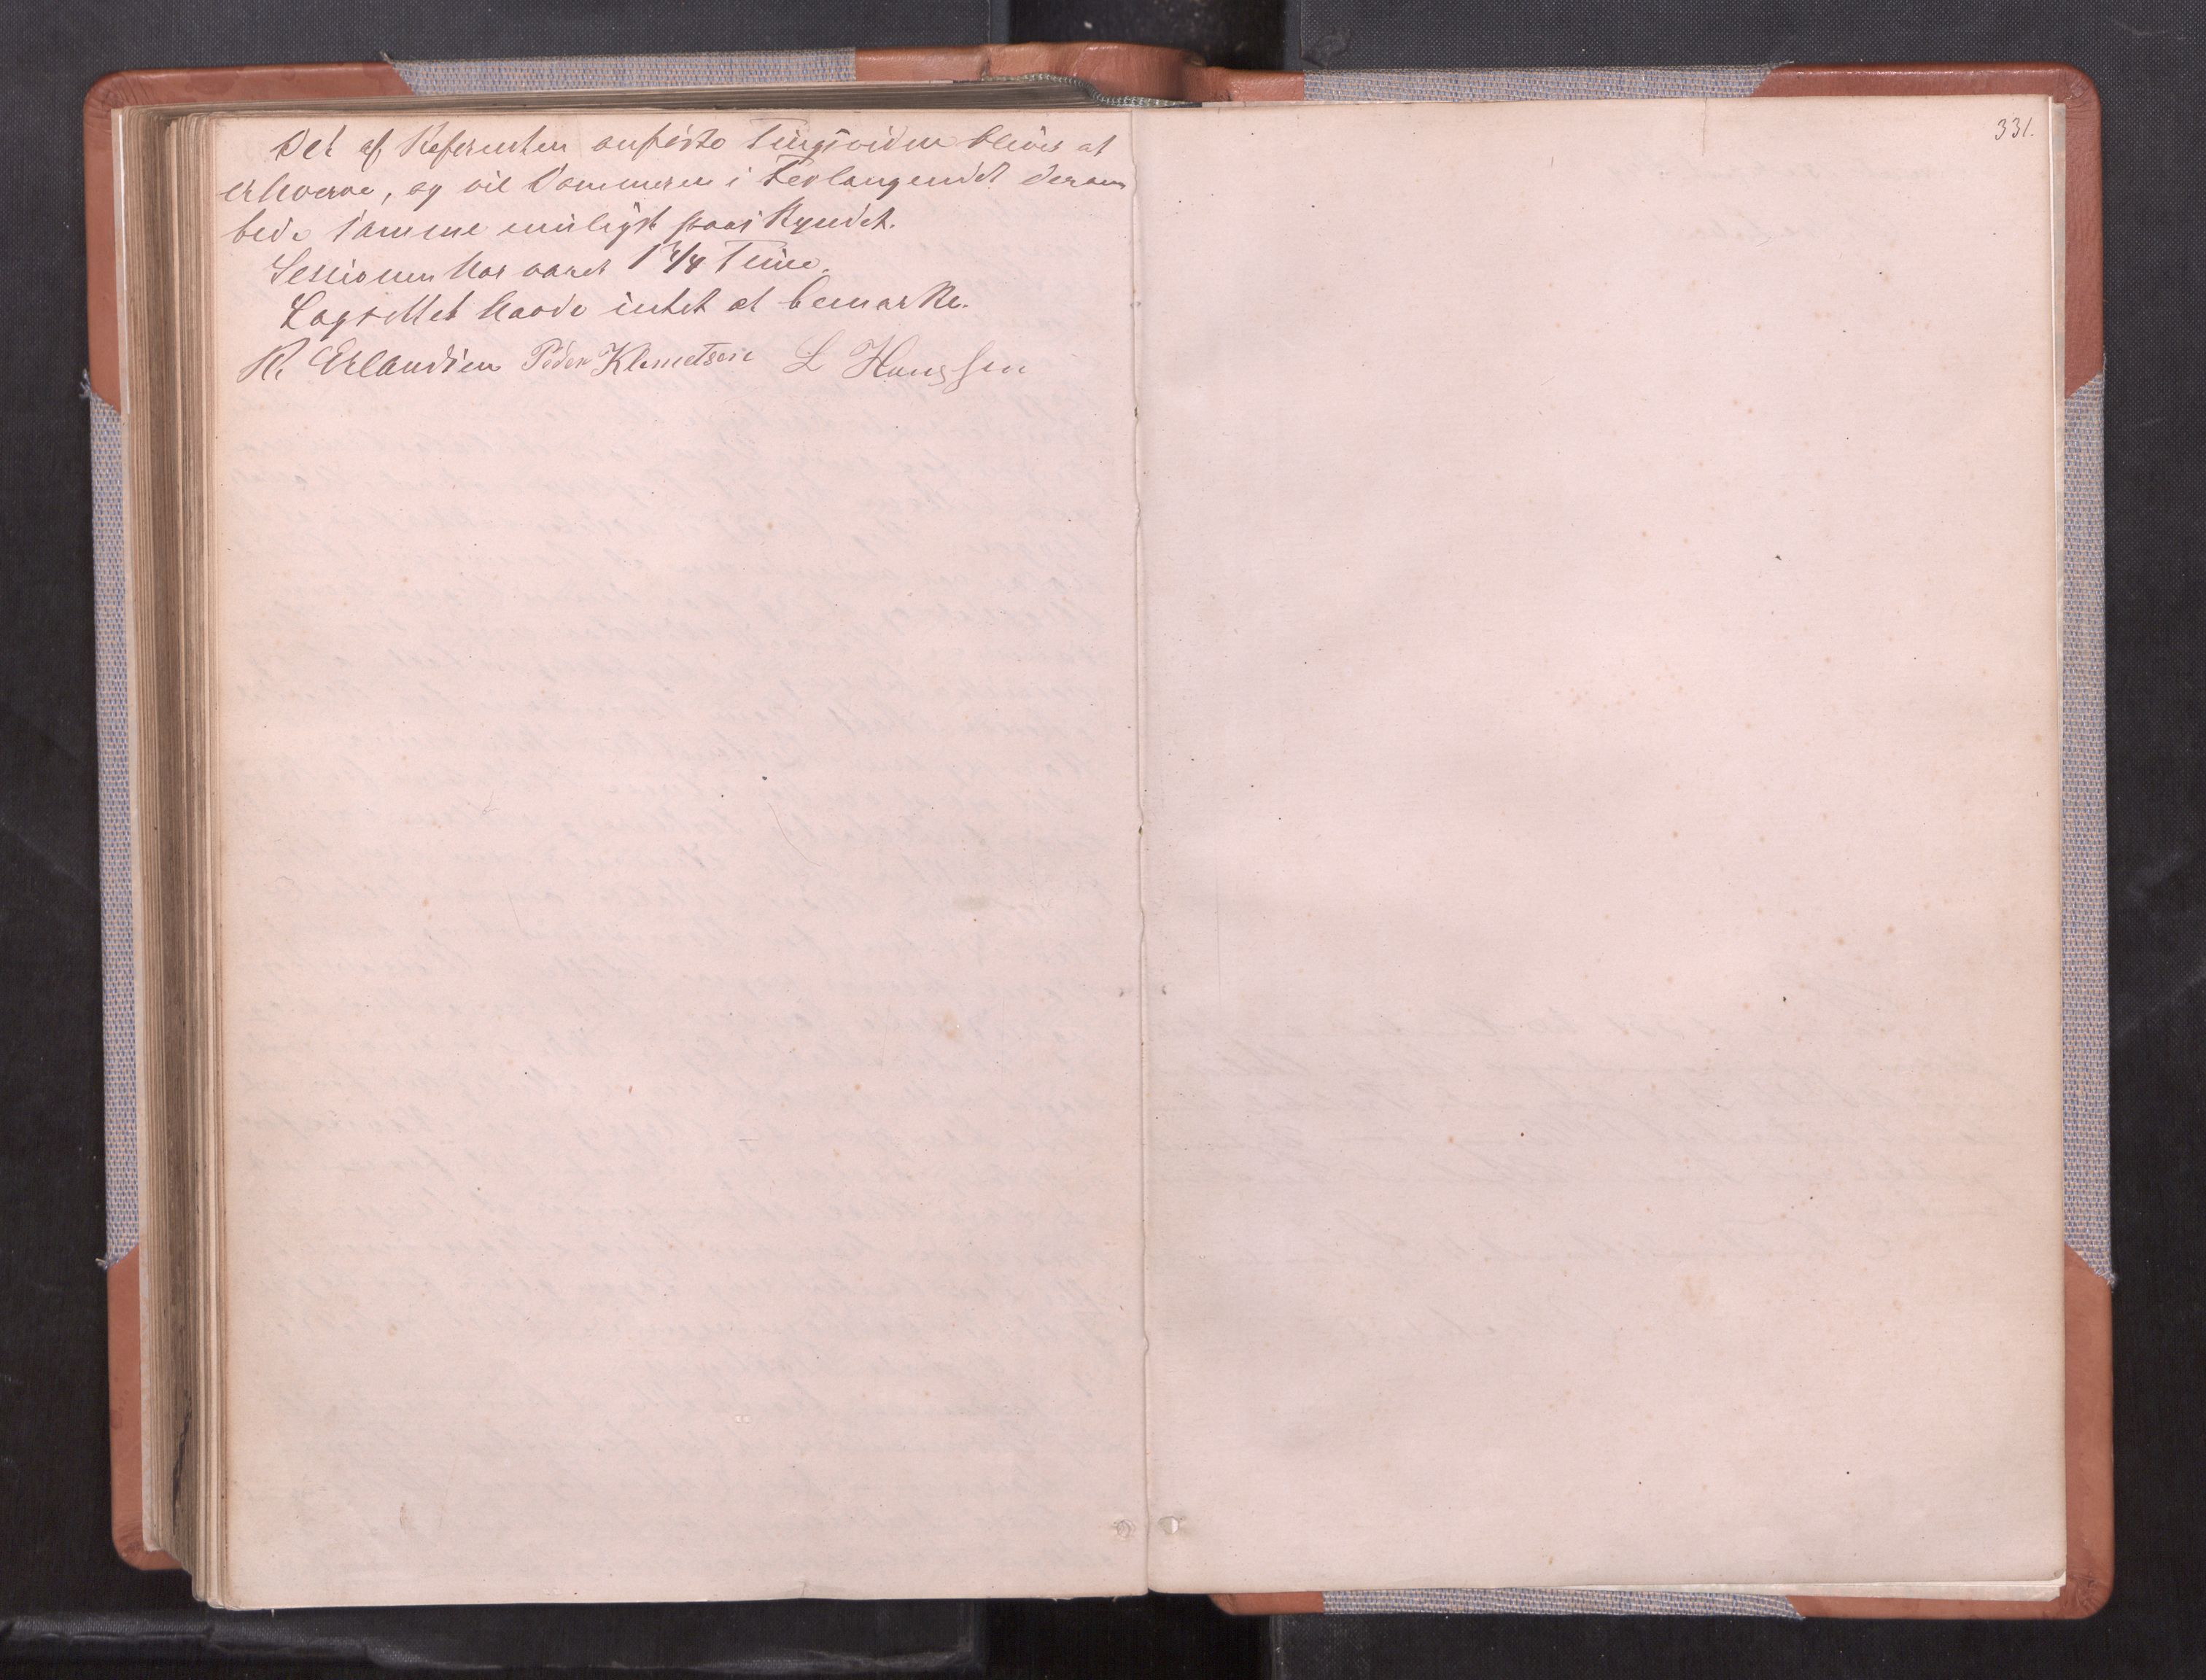 Det af Referenten anførte Tingsvidne bliver at
erhverve, og vil Dommeren i Forlangendet derom
bede samme muligst paaskyndet.
Sessionen har varet 1 3/4 Time.
Lagrettet havde intet at bemærke.
R. Erlandsen Peder Klemetsen L Hanssen
331.